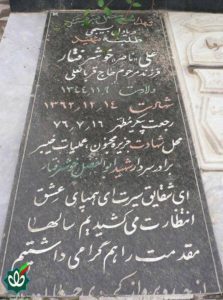 طلبه شهید
علی ناصر خوش رفتار
فرزند مرحوم حاج قربانعلی
ولادت ۱۳۴۴
شهادت ۱۳۶۲.۱۲.۱۴
رجعت پیکر مطهر ۷۶.۷.۱۶
محل شهادت جزیره مجنون عملیات خیبر
برادر سردار شهید ابوالفضل خوش رفتار
ای شقایق سیرت ای همپای عشق
انتظارت می کشیدیم سالها
مقدمت را هم گرامی داشتیم